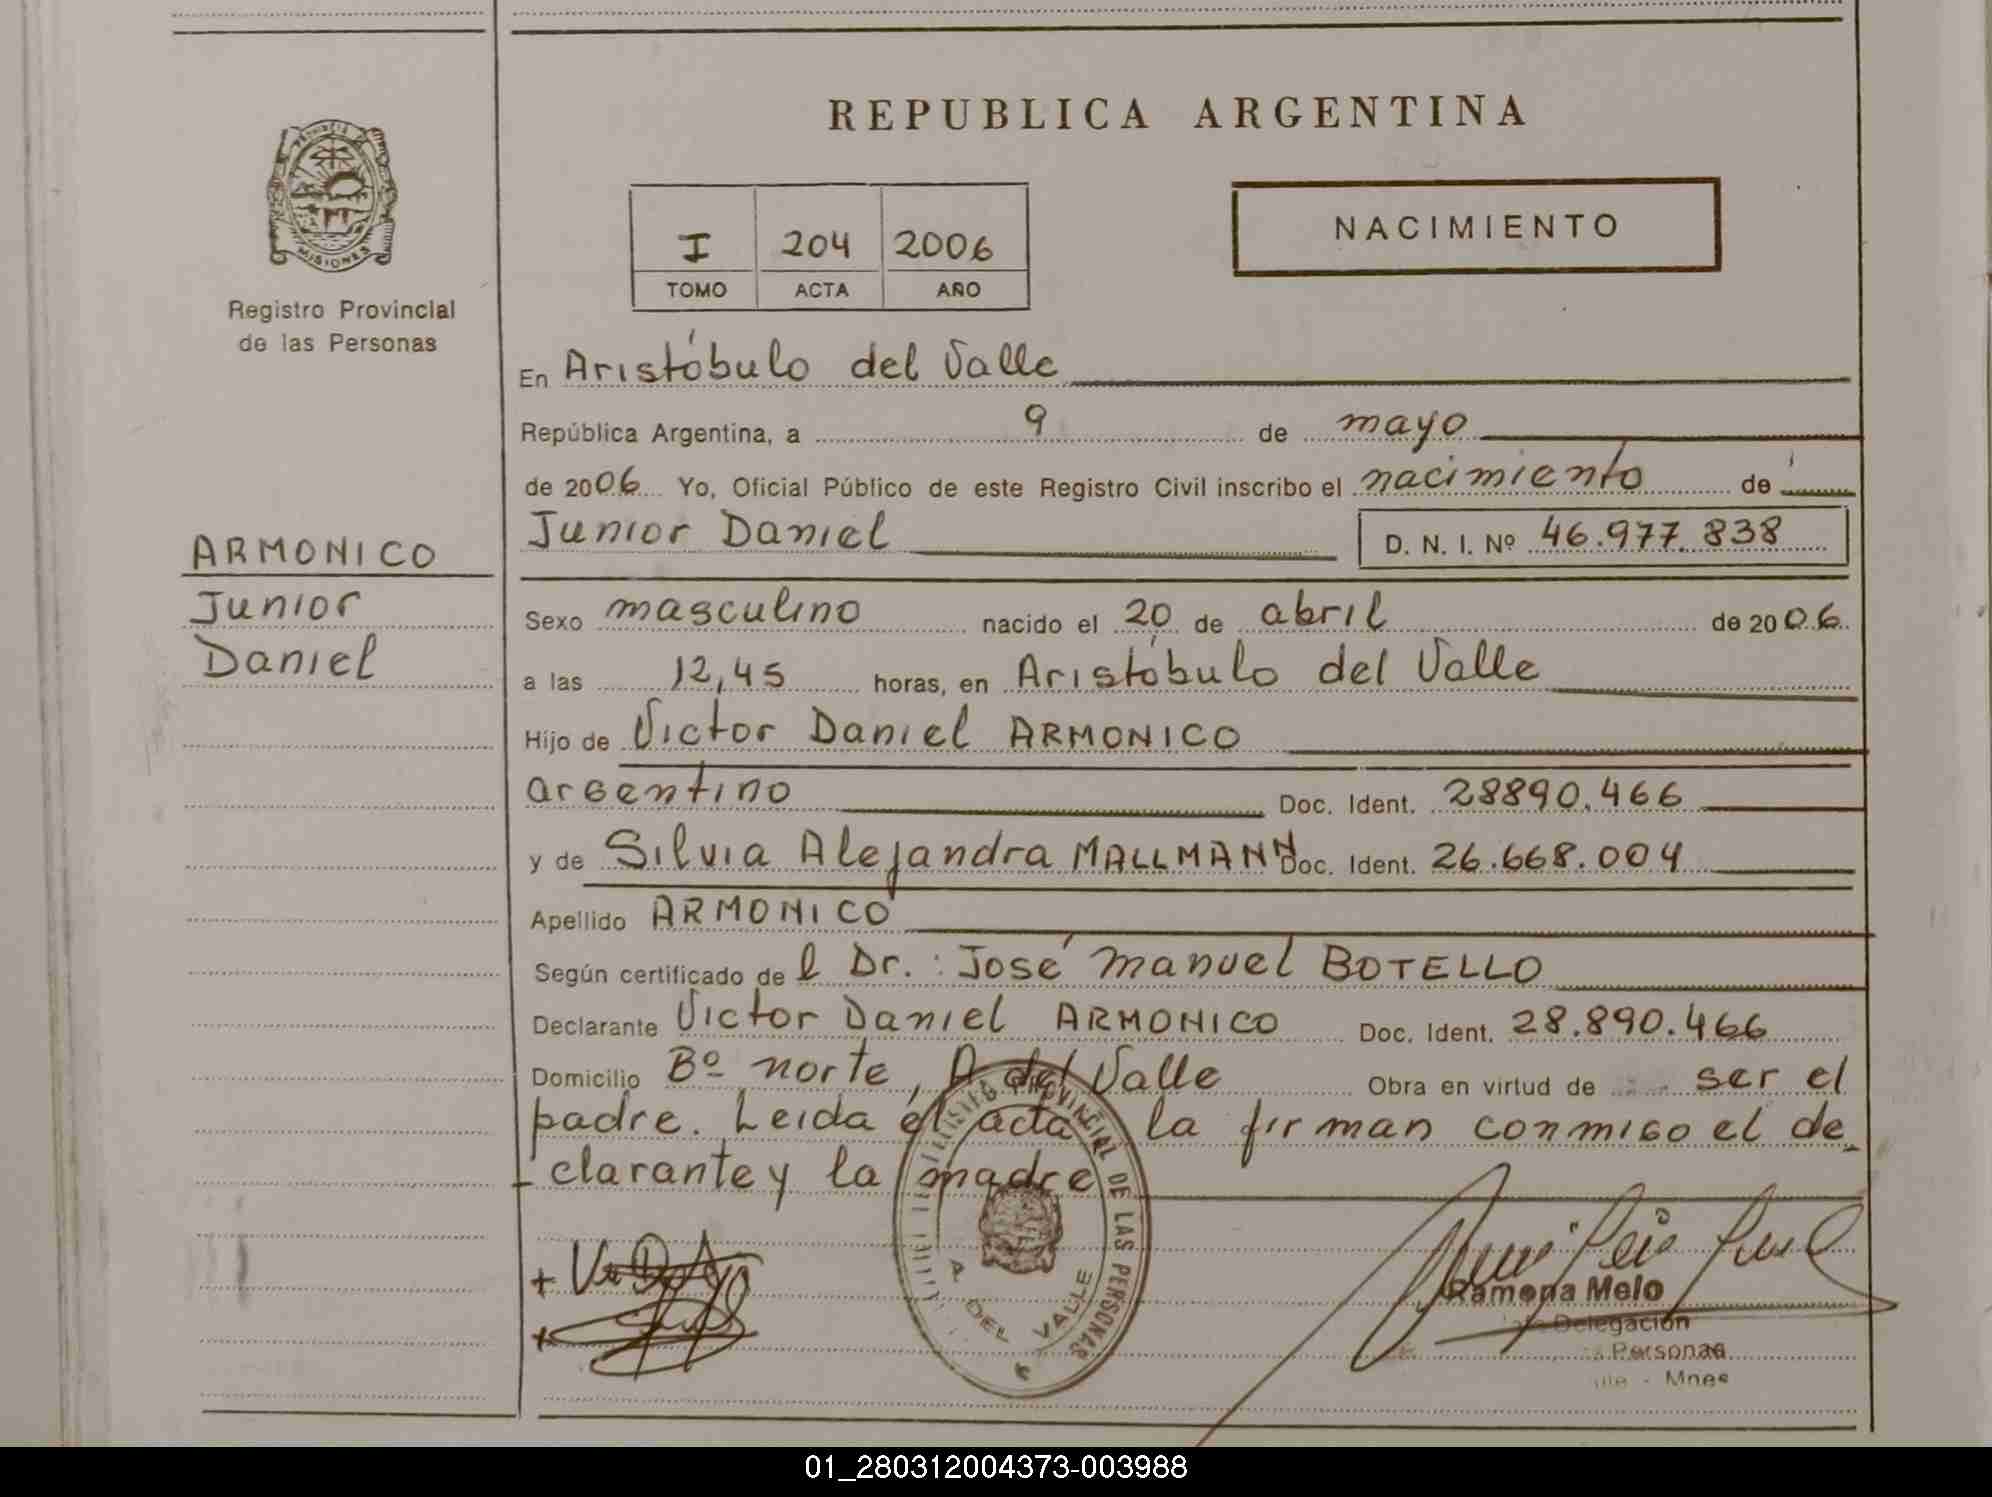 REPUBLICA ARGENTINA
PROVINCIA DE
MISIONES
Registro Provincial
de las Personas
NACIMIENTO
I 204 2006
TOMO ACTA AÑO
ARMONICO
Junior
Daniel
En Aristóbulo del Valle
República Argentina, a 9 de mayo
de 2006 Yo, Oficial Público de este Registro Civil inscribo el nacimiento de
Junior Daniel D. N. I. Nº 46.977.838
Sexo masculino nacido el 20 de abril de 2006
a las 12,45 horas, en Aristóbulo del Valle
Hijo de Victor Daniel ARMONICO
argentino Doc. Ident. 28890.466
y de Silvia Alejandra MALLMANN Doc. Ident. 26.668.004
Apellido ARMONICO
Según certificado del Dr.: José Manuel BOTELLO
Declarante Victor Daniel ARMONICO Doc. Ident. 28.890.466
Domicilio Bº norte, A del Valle Obra en virtud de ser el
padre. Leida el acta la firman conmigo el de-
-clarante y la madre
REGISTRO PROVINCIAL DE LAS PERSONAS
A. DEL VALLE
Ramona Melo
Delegación
Personas
- Mnes
01_280312004373-003988